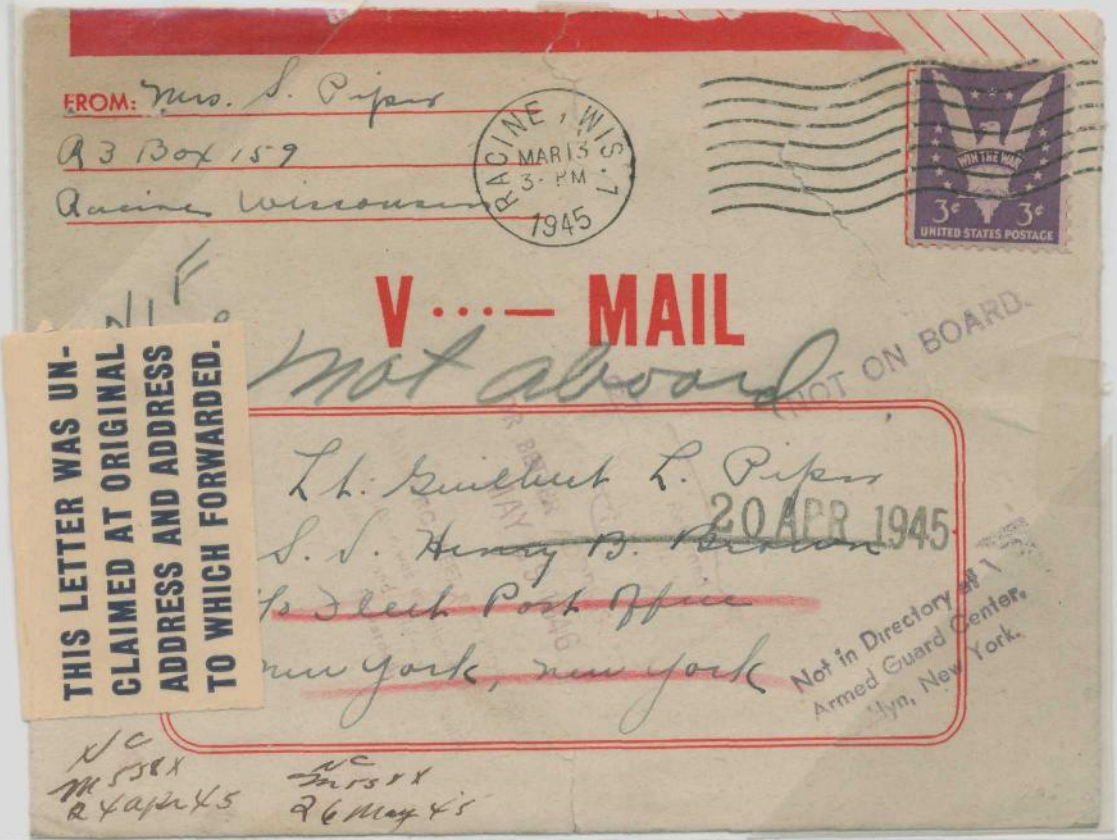 FROM: Mrs. S. Piper
R 3 Box 159
Racine Wisconsin
RACINE, WIS. 7
MAR 13
3 - PM
1945
WIN THE WAR
3¢ 3¢
UNITED STATES POSTAGE
V ...— MAIL
Not aboard
NOT ON BOARD.
THIS LETTER WAS UN-
CLAIMED AT ORIGINAL
ADDRESS AND ADDRESS
TO WHICH FORWARDED.
Lt. Guilbert L. Piper
20 APR 1945
S. S. Henry B. Brown
c/o Fleet Post Office
New York, New York
Not in Directory at
Armed Guard Center,
lyn, New York.
NC
24 Apr 45
NC
26 May 45